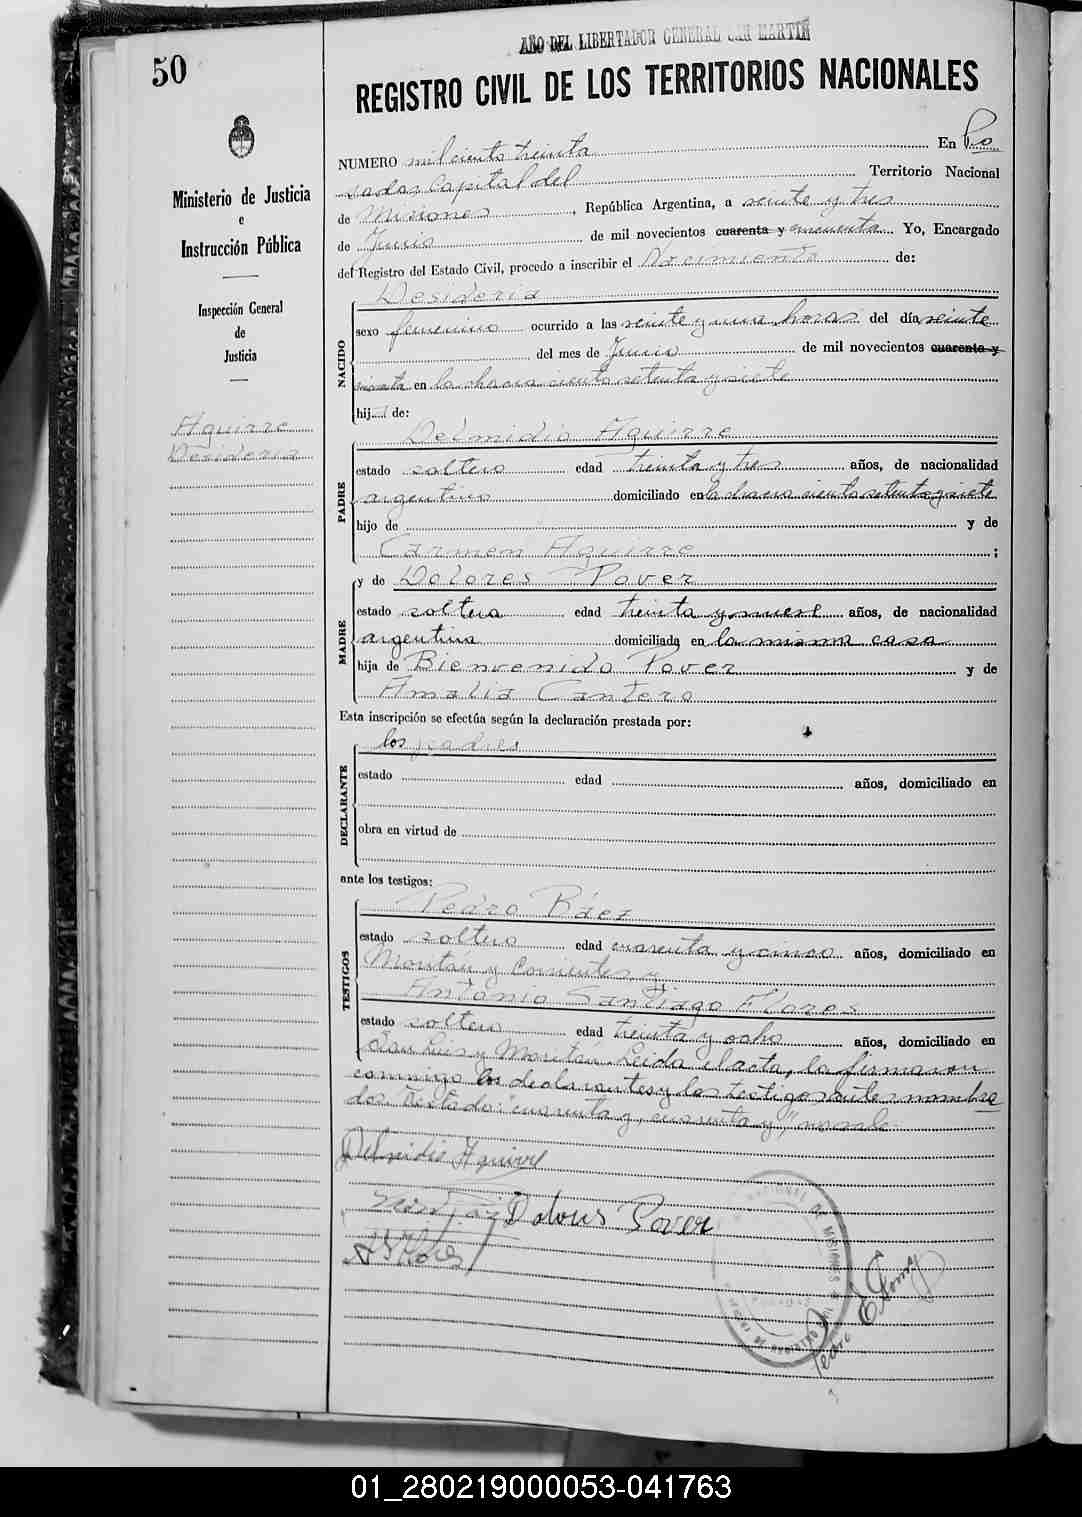 50
AÑO DEL LIBERTADOR GENERAL SAN MARTIN
REGISTRO CIVIL DE LOS TERRITORIOS NACIONALES
Ministerio de Justicia
e
Instrucción Pública
Inspección General
de
Justicia
Aguirre
Desideria
NUMERO mil ciento treinta En Po
sadas Capital del Territorio Nacional
de Misiones, República Argentina, a veinte y tres
de Junio de mil novecientos cuarenta y cincuenta Yo, Encargado
del Registro del Estado Civil, procedo a inscribir el Nacimiento de:
Desideria
NACIDO
sexo femenino ocurrido a las veinte y una horas del día veinte
del mes de Junio de mil novecientos cuarenta y
cincuenta en la chacra ciento setenta y siete
hij de:
PADRE
Delmidio Aguirre
estado soltero edad treinta y tres años, de nacionalidad
argentino domiciliado en la chacra ciento setenta y siete
hijo de y de
Carmen Aguirre ;
MADRE
y de Dolores Pover
estado soltera edad treinta y nueve años, de nacionalidad
argentina domiciliada en la misma casa
hija de Bienvenido Pover y de
Amalia Cantero
Esta inscripción se efectúa según la declaración prestada por:
DECLARANTE
los padres
estado edad años, domiciliado en
obra en virtud de
ante los testigos:
TESTIGOS
Pedro Báez
estado soltero edad cuarenta y cinco años, domiciliado en
y Corrientes y
Antonio Santiago Flores
estado soltero edad treinta y ocho años, domiciliado en
San Luis y Leida el acta, la firmaron
conmigo los declarantes y los testigos antes nombra
dos. Testado: "cuarenta y, cuarenta y", no vale.
Delmidio Aguirre
Dolores Pover
A S Flores
NACIONAL DE MISIONES
Pedro E. Gomez
01_280219000053-041763